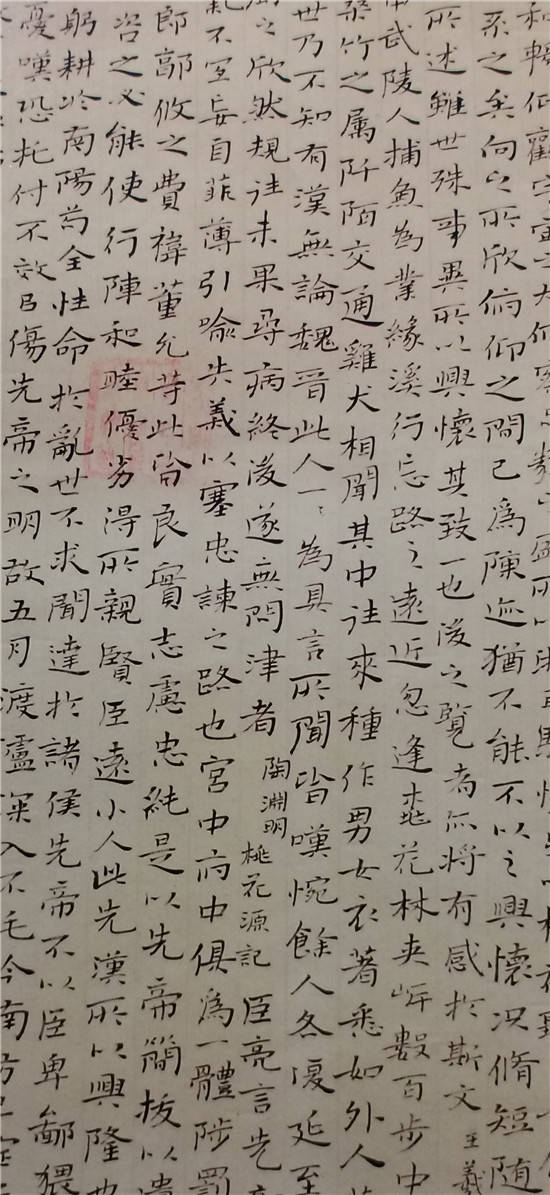 和暢仰觀宇宙之大
系之矣向之所欣俯仰之間已為陳迹猶不能不以之興懷況脩短隨
所述雖世殊事異所以興懷其致一也後之覽者亦將有感於斯文 王羲
武陵人捕魚為業緣溪行忘路之遠近忽逢桃花林夾岸數百步中
桑竹之属阡陌交通雞犬相聞其中往來種作男女衣著悉如外人
世乃不知有漢無論魏晉此人一々為具言所聞皆嘆惋餘人各復延至
之欣然規往未果尋病終後遂無問津者 陶淵明 桃花源記 臣亮言先
氣不宜妄自菲薄引喻失義以塞忠諫之路也宮中府中俱為一體陟罰
郎郭攸之費禕董允等此皆良實志慮忠純是以先帝簡拔以遺
咨之必能使行陣和睦優劣得所親賢臣遠小人此先漢所以興隆也
躬耕於南陽苟全性命於亂世不求聞達於諸侯先帝不以臣卑鄙猥
憂嘆恐托付不效以傷先帝之明故五月渡瀘深入不毛今南方已定